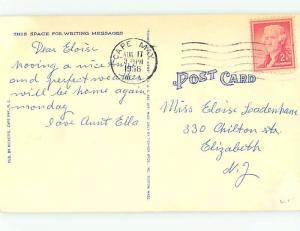 THIS SPACE FOR WRITING MESSAGES
Dear Eloise
Having a nice time
and perfect weather
will be home again
monday
Love Aunt Ella
CAPE MAY
AUG 11
1956
N.J.
2¢
POST CARD
Miss Eloise Loadenhane
330 Chilton str
Elizabeth
N.J